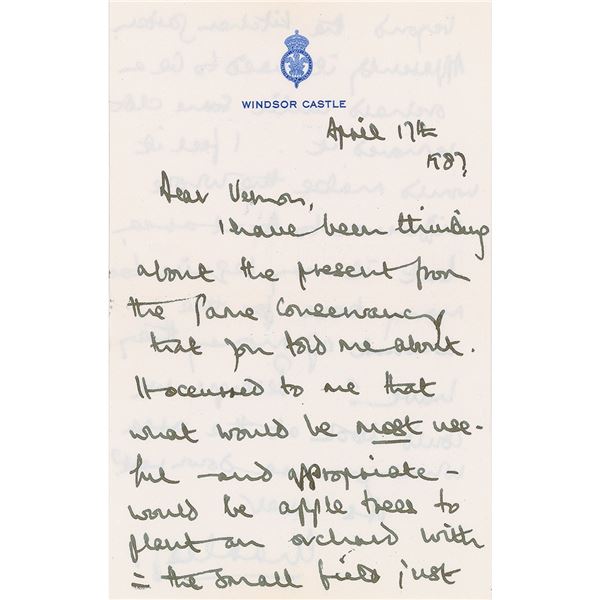 WINDSOR CASTLE
April 17th
1987
Dear Vernon,
I have been thinking
about the present from
the Game Conservancy
that you told me about.
It occurred to me that
what would be most use-
ful - and appropriate -
would be apple trees to
plant an orchard with
= the small field just